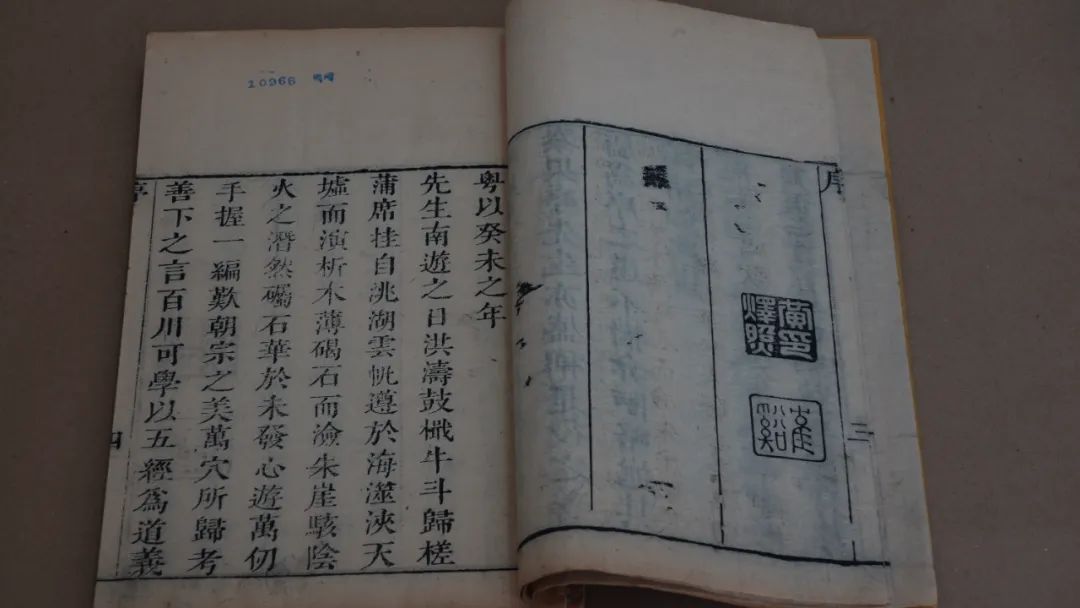 序
三
粵以癸未之年
先生南遊之日洪濤鼓檝牛斗歸槎
蒲席挂自洮湖雲帆遵於海澨浹天
墟而演析木薄碣石而澰朱崖駭陰
火之潛然矚石華於未發心遊萬仞
手握一編歎朝宗之美萬穴所歸考
善下之言百川可學以五經爲道義
序
四
10966